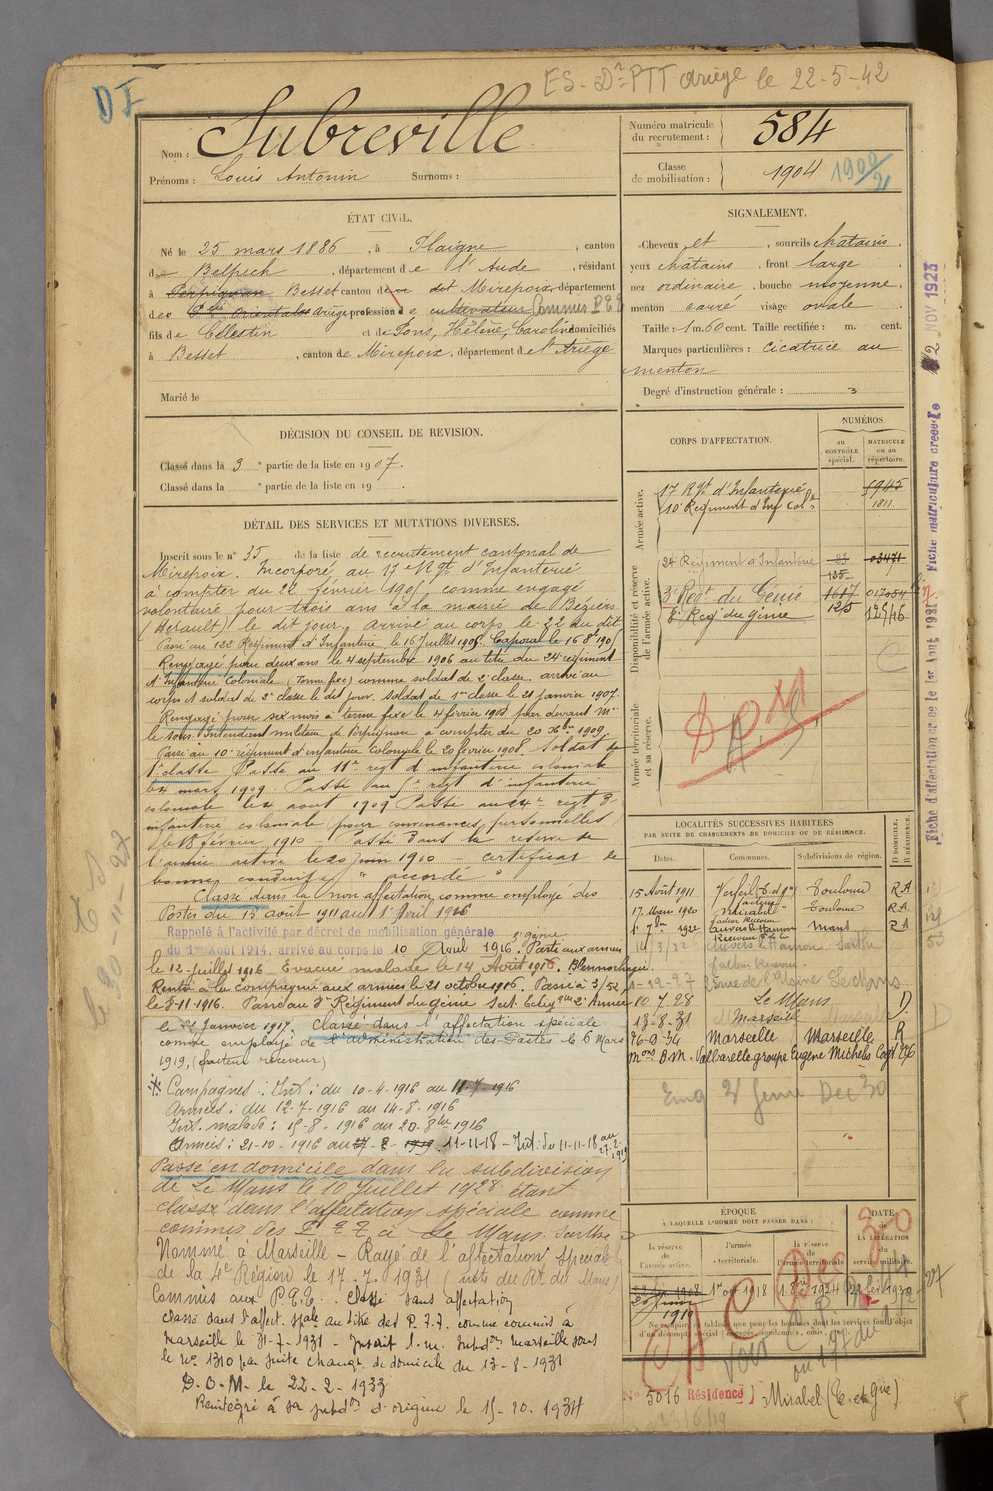 ES - Dn PTT Ariège le 22-5-42
DI
Nom : Subreville
Prénoms : Louis Antonin Surnoms :
Numéro matricule du recrutement : 584
Classe de mobilisation : 1904 1900/21
ÉTAT CIVIL.
Né le 25 mars 1886, à Plaigne, canton
de Belpech, département de l'Aude, résidant
à Perpignan Besset canton de dit Mirepoix, département
des Pées Orientales Ariège profession de cultivateur Commis PTT
fils de Célestin et de Pons, Hélène, Caroline domiciliés
à Besset, canton de Mirepoix, département de l'Ariège
Marié le
SIGNALEMENT.
Cheveux et, sourcils châtains.
yeux châtains, front large
nez ordinaire, bouche moyenne.
menton carré visage ovale
Taille : 1 m. 60 cent. Taille rectifiée : m. cent.
Marques particulières : cicatrice au
menton
Degré d'instruction générale : 3
DÉCISION DU CONSEIL DE REVISION.
Classé dans la 3e partie de la liste en 1907.
Classé dans la e partie de la liste en 19
DÉTAIL DES SERVICES ET MUTATIONS DIVERSES.
Inscrit sous le n° 35 de la liste de recrutement cantonal de
Mirepoix. Incorporé au 17e Rgt d'Infanterie
à compter du 22 février 1905 comme engagé
volontaire pour trois ans à la mairie de Béziers
(Hérault) le dit jour. Arrivé au corps le 22 du dit
Passé au 122 Régiment d'Infanterie le 16 Juillet 1905. Caporal le 16 8bre 1905
Rengagé pour deux ans le 4 septembre 1906 au titre du 24 régiment
d'Infanterie Coloniale (Terme fixe) comme soldat de 2e classe. arrivé au
corps et soldat de 2e classe le dit jour. soldat de 1ère classe le 21 janvier 1907.
Rengagé pour six mois à terme fixe le 4 février 1908 par devant Mr
le sous Intendant militaire de Perpignan à compter du 20 Xbre 1909.
Passé au 10e régiment d'infanterie coloniale le 20 février 1908. Soldat de
1e classe Passé au 11e regt d'infanterie coloniale
le 4 mars 1909. Passé au regt d'infanterie
coloniale le 4 août 1909 Passé au 24e regt d'
infanterie coloniale (pour convenances personnelles)
le 18 février 1910 Passé dans la réserve de
l'armée active le 20 juin 1910 - certificat de
bonne conduite "accordé"
Classé dans la non affectation comme employé des
Postes du 15 août 1911 au 1er Avril 1916
Rappelé à l'activité par décret de mobilisation générale
du 1er Août 1914, arrivé au corps le 10 Avril 1916. Parti aux armées
le 12 juillet 1916 Evacué malade le 14 Août 1916. Blennorhagie.
Rentré à la compagnie aux armées le 21 octobre 1916. Passé à 3/52
le 3-11-1916. Passé au 8e Régiment du génie
le 21 Janvier 1917. Classé dans l'affectation spéciale
comme employé de l'administration des Postes le 6 Mars
1919, (facteur receveur)
Campagnes : Int : du 10-4-1916 au 11-7-1916
Armées : du 12-7-1916 au 14-8-1916
Int. malade : 15-8-1916 au 20-8bre 1916
Armées : 21-10-1916 au 27-2-1919 11-11-18 - Int : du 11-11-18 au 27-2-1919
Passé en domicile dans la subdivision
de Le Mans le 10 Juillet 1928 étant
classé dans l'affectation spéciale comme
commis des P T T à Le Mans Sarthe
Nommé à Marseille - Rayé de l'affectation spéciale
de la 4e Région le 17-7-1931 (note du Rt du Mans)
Commis aux P.T.T. Classé sans affectation
Classé dans l'affect. spale au titre des P.T.T. comme commis à
Marseille le 31-7-1931 - Inscrit s.m. subdon Marseille sous
le no 1310 par suite changt de domicile du 13-8-1931
D.O.M. le 22-2-1933
Réintégré à sa subdon d'origine le 15-10-1934
CORPS D'AFFECTATION.
NUMÉROS
au CONTRÔLE spécial.
MATRICULE ou au répertoire.
Armée active.
17 Rgt d'Infanterie 5945
10e Régiment d'Inf Colle 1811
Disponibilité et réserve de l'armée active.
24 Régiment d'Infanterie 23 03471
125
3e Regt du Génie 1617 017054
8e Reg du génie 125 12546
Armée territoriale et sa réserve.
DOM
LOCALITÉS SUCCESSIVES HABITÉES
PAR SUITE DE CHANGEMENTS DE DOMICILE OU DE RÉSIDENCE.
Dates. Communes. Subdivisions de région. D DOMICILE. R RÉSIDENCE.
15 Août 1911 Verfeil (T. et Gne) Toulouse RA
17 Mars 1920 Mirabel Toulouse RA
1er 7bre 1922 Auvers le Hamon Mans RA
14/3/22 Auvers le Hamon Sarthe
10.7.28 Le Mans D
13-8-31 Marseille
26-9-34 Marseille Marseille R
Valbarelle groupe Eugène Michelis
ÉPOQUE
À LAQUELLE L'HOMME DOIT PASSER DANS :
la réserve de l'armée active.
l'armée territoriale.
la réserve de l'armée territoriale.
DATE de LA LIBÉRATION du service militaire.
20 juin 1910
1er oct 1918
N° 5016 Résidence Mirabel (T. et Gne)
Fiche d'affectation créée le 1er Aout 1931
Fiche matriculaire créée le 2 NOV 1923